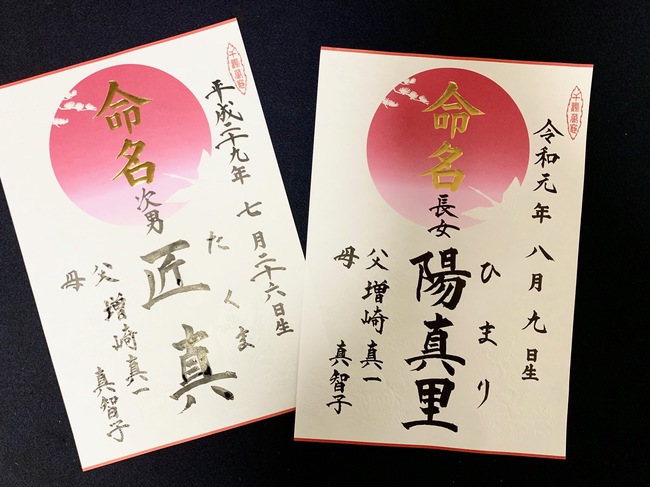 平成二十九年 七月二十六日生
命名
次男
たくま
匠真
父 増崎真一
母 真智子
令和元年 八月九日生
命名
長女
ひまり
陽真里
父 増崎真一
母 真智子